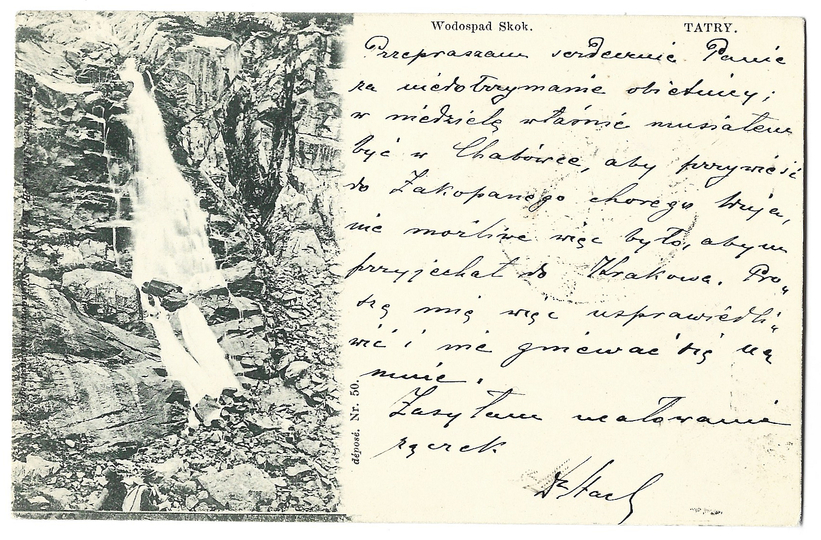 Wodospad Skok. TATRY.
Przepraszam serdecznie Panie
za niedotrzymanie obietnicy;
w niedzielę właśnie musiałem
być w Chabówce, aby przywieść
do Zakopanego chorego wuja,
nie możliwe więc było, abym
przyjechał do Krakowa. Pro„
szę mię więc usprawiedli„
wić i nie gniewać się na
mnie.
Zasyłam ucałowania
rączek
Dr Stach
déposé. Nr. 50.